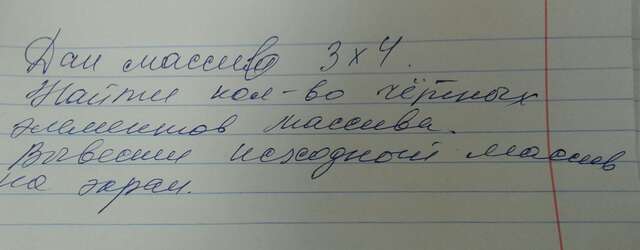 Дан массив 3×4.
Найти кол-во чётных
элементов массива.
Вывести исходный массив
на экран.